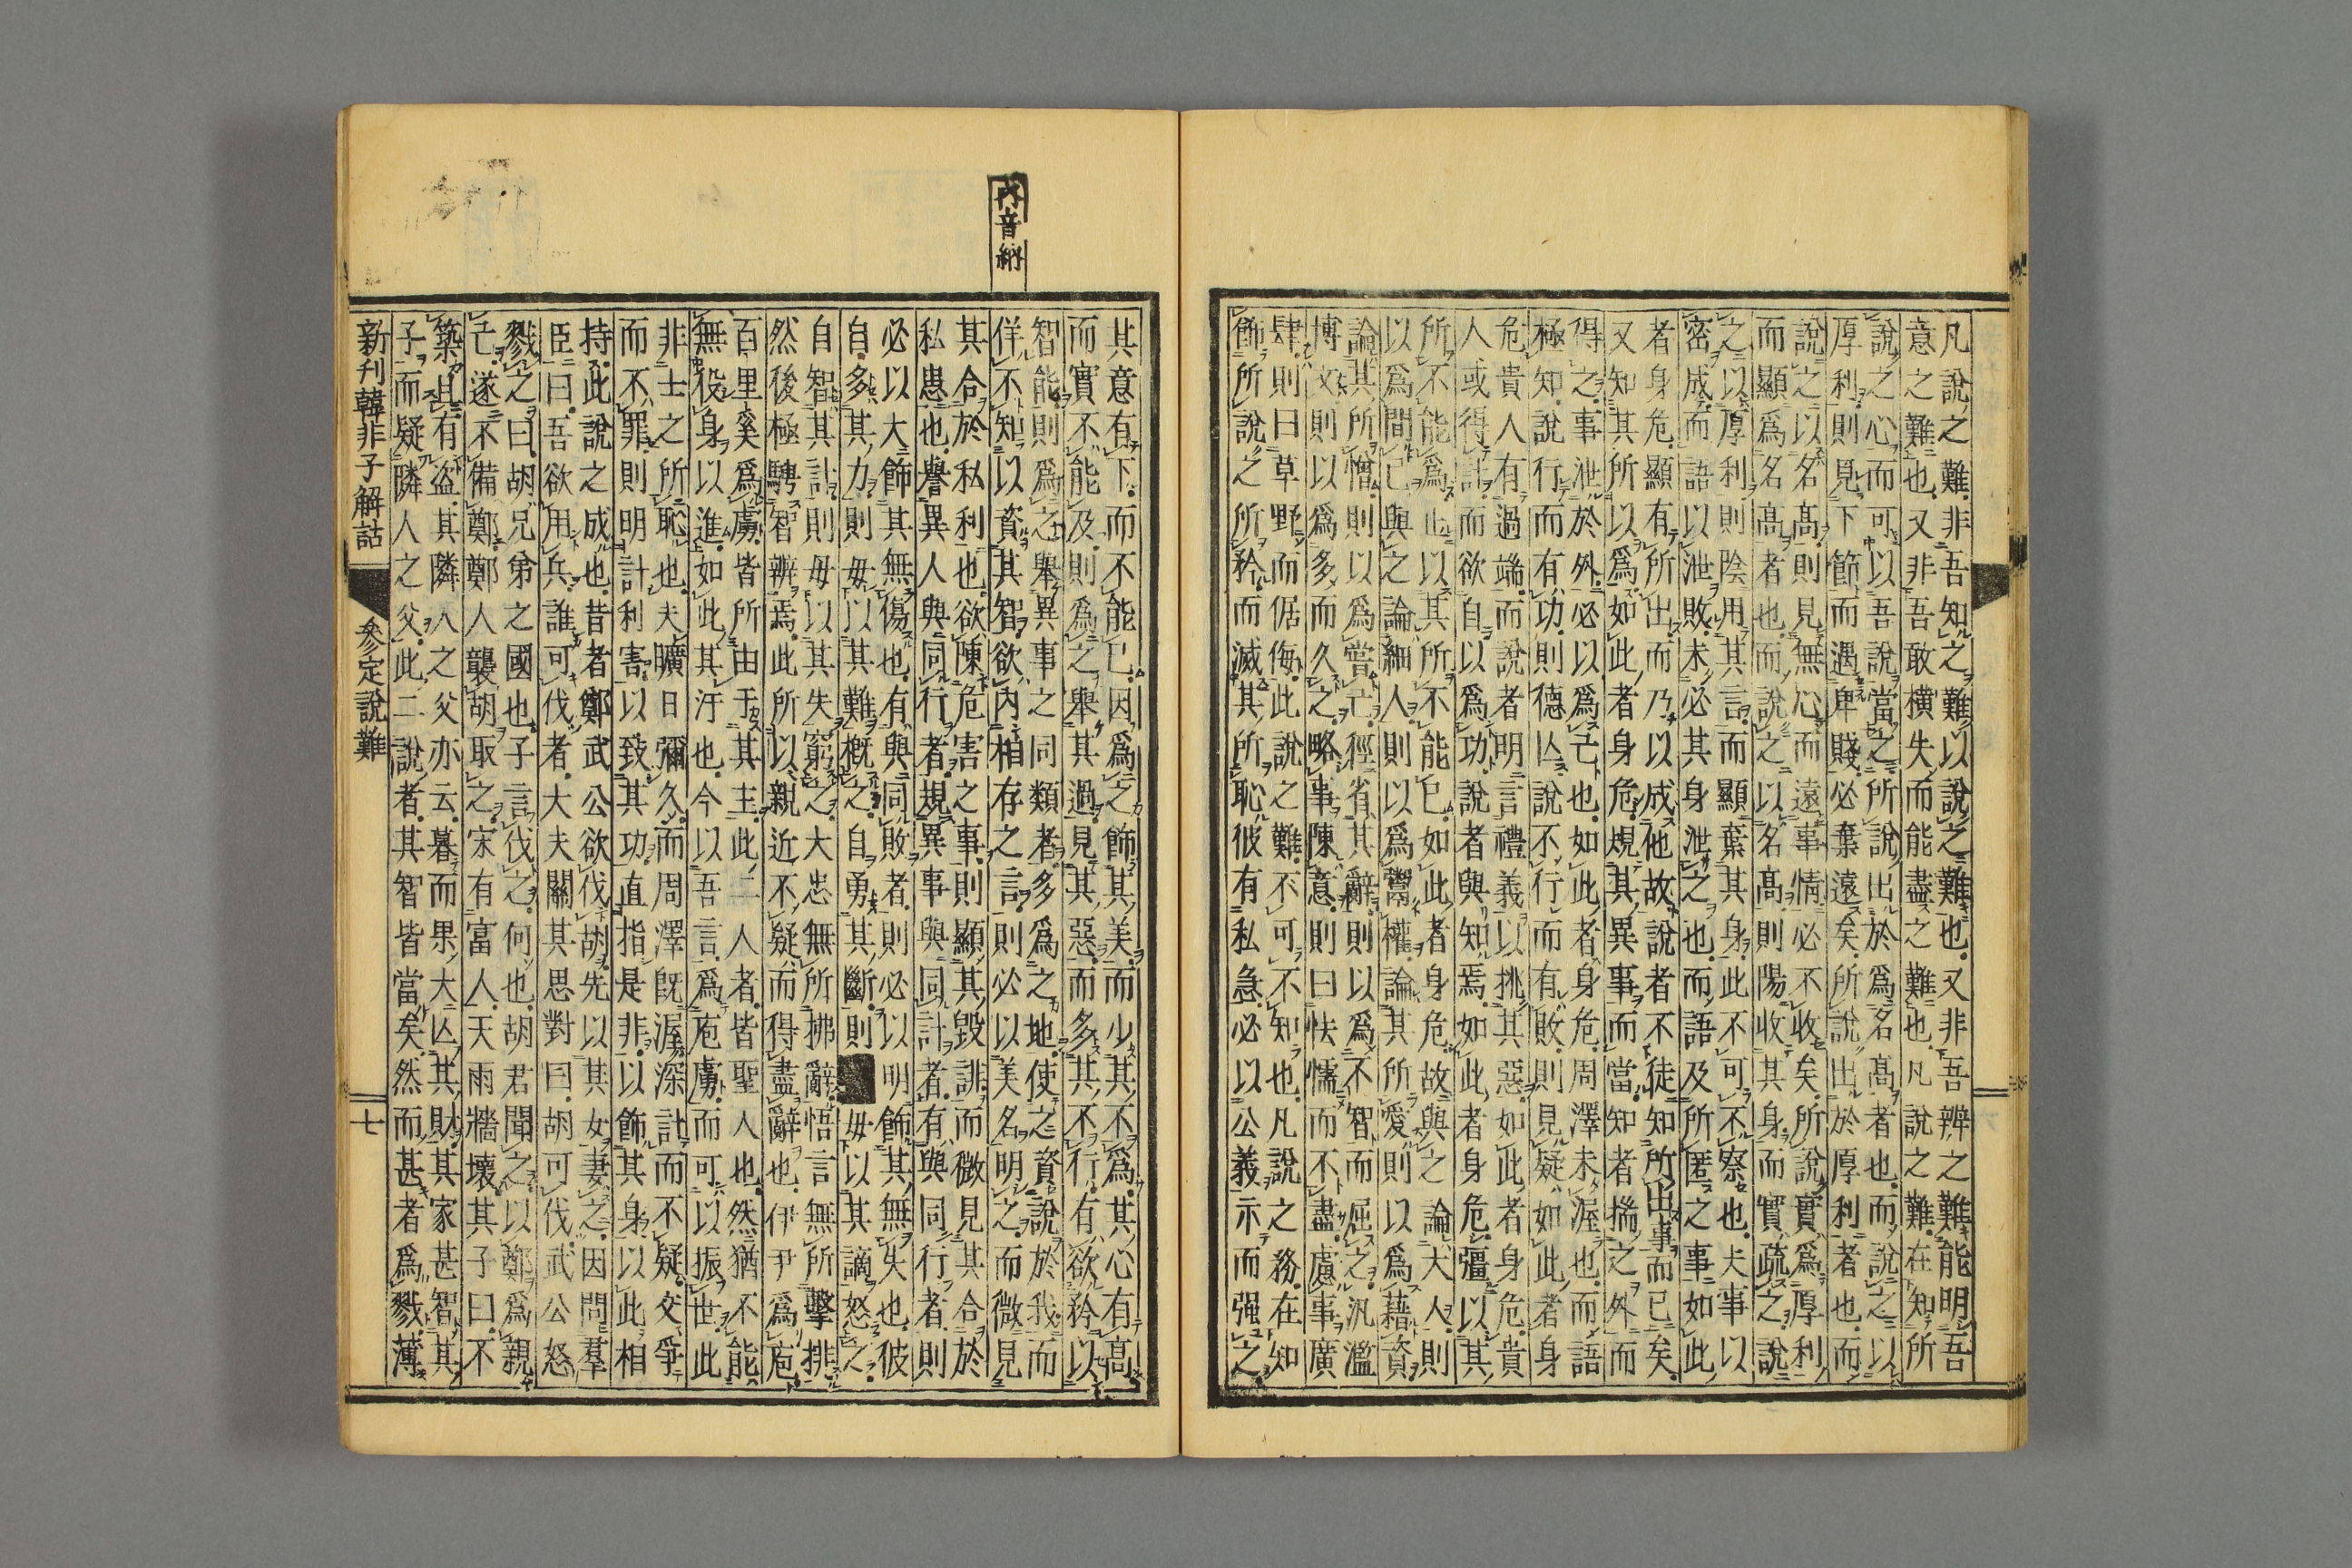 凡說之難非吾知之難以說之難也又非吾辨之難能明吾
意之難也又非吾敢橫失而能盡之難也凡說之難在知所
說之心而可以吾說當之所說出於爲名高者也而說之以
厚利則見下節而遇卑賤必棄遠矣所說出於厚利者也而
說之以名高則見無心而遠事情必不收矣所說實爲厚利
而顯爲名高者也而說之以名高則陽收其身而實疏之說
之以厚利則陰用其言而顯棄其身此不可不察也夫事以
密成而語以泄敗未必其身泄之也而語及所匿之事如此
者身危顯有所出而乃以成他故說者不徒知所出事而已矣
又知其所以爲如此者身危規其異事而當知者揣之外而
得之事泄於外必以爲亡也如此者身危周澤未渥也而語
極知說行而有功則德亾說不行而有敗則見疑如此者身
危貴人有過端而說者明言禮義以挑其惡如此者身危貴
人或得計而欲自以爲功說者與知焉如此者身危彊以其
所不能爲止以其所不能已如此者身危故與之論大人則
以爲間己與之論細人則以爲鬻權論其所愛則以爲藉資
論其所憎則以爲嘗亡徑省其辭則以爲不智而屈之汎濫
博文則以爲多而久之略事陳意則曰怯懦而不盡慮事廣
肆則曰草野而倨侮此說之難不可不知也凡說之務在知
飾所說之所矜而滅其所恥彼有私急必以公義示而强之
其意有下而不能已因爲之飾其美而少其不爲其心有高
而實不能及則爲之舉其過見其惡而多其不行有欲矜以
智能則爲之舉異事之同類者多爲之地使之資說於我而
佯不知以資其智欲內相存之言則必以美名明之而微見
其合於私利也欲陳危害之事則顯其毀誹而微見其合於
私患也譽異人與同行者規異事與同計者有與同行者則
必以大飾其無傷也有與同敗者則必以明飾其無失也彼
自多其力則毋以其難槪之自勇其斷則毋以其謫怒之
自智其計則毋以其失窮之大忠無所拂辭悟言無所擊排
然後極騁智辨焉此所以親近不疑而得盡辭也伊尹爲庖
百里奚爲虜皆所由于其主此二人者皆聖人也然猶不能
無役身以進如此其汙也今以吾言爲庖虜而可以振世此
非士之所恥也夫曠日彌久而周澤旣渥深計而不疑交爭
而不罪則明計利害以致其功直指是非以飾其身以此相
持此說之成也昔者鄭武公欲伐胡先以其女妻之因問羣
臣曰吾欲用兵誰可伐者大夫關其思對曰胡可伐武公怒
戮之曰胡兄弟之國也子言伐之何也胡君聞之以鄭爲親
己遂不備鄭鄭人襲胡取之宋有富人天雨牆壞其子曰不
築且有盜其隣人之父亦云暮而果大亾其財其家甚智其
子而疑隣人之父此二說者其智皆當矣然而甚者爲戮薄
新刋韓非子解詁
參定說難
七
內音納